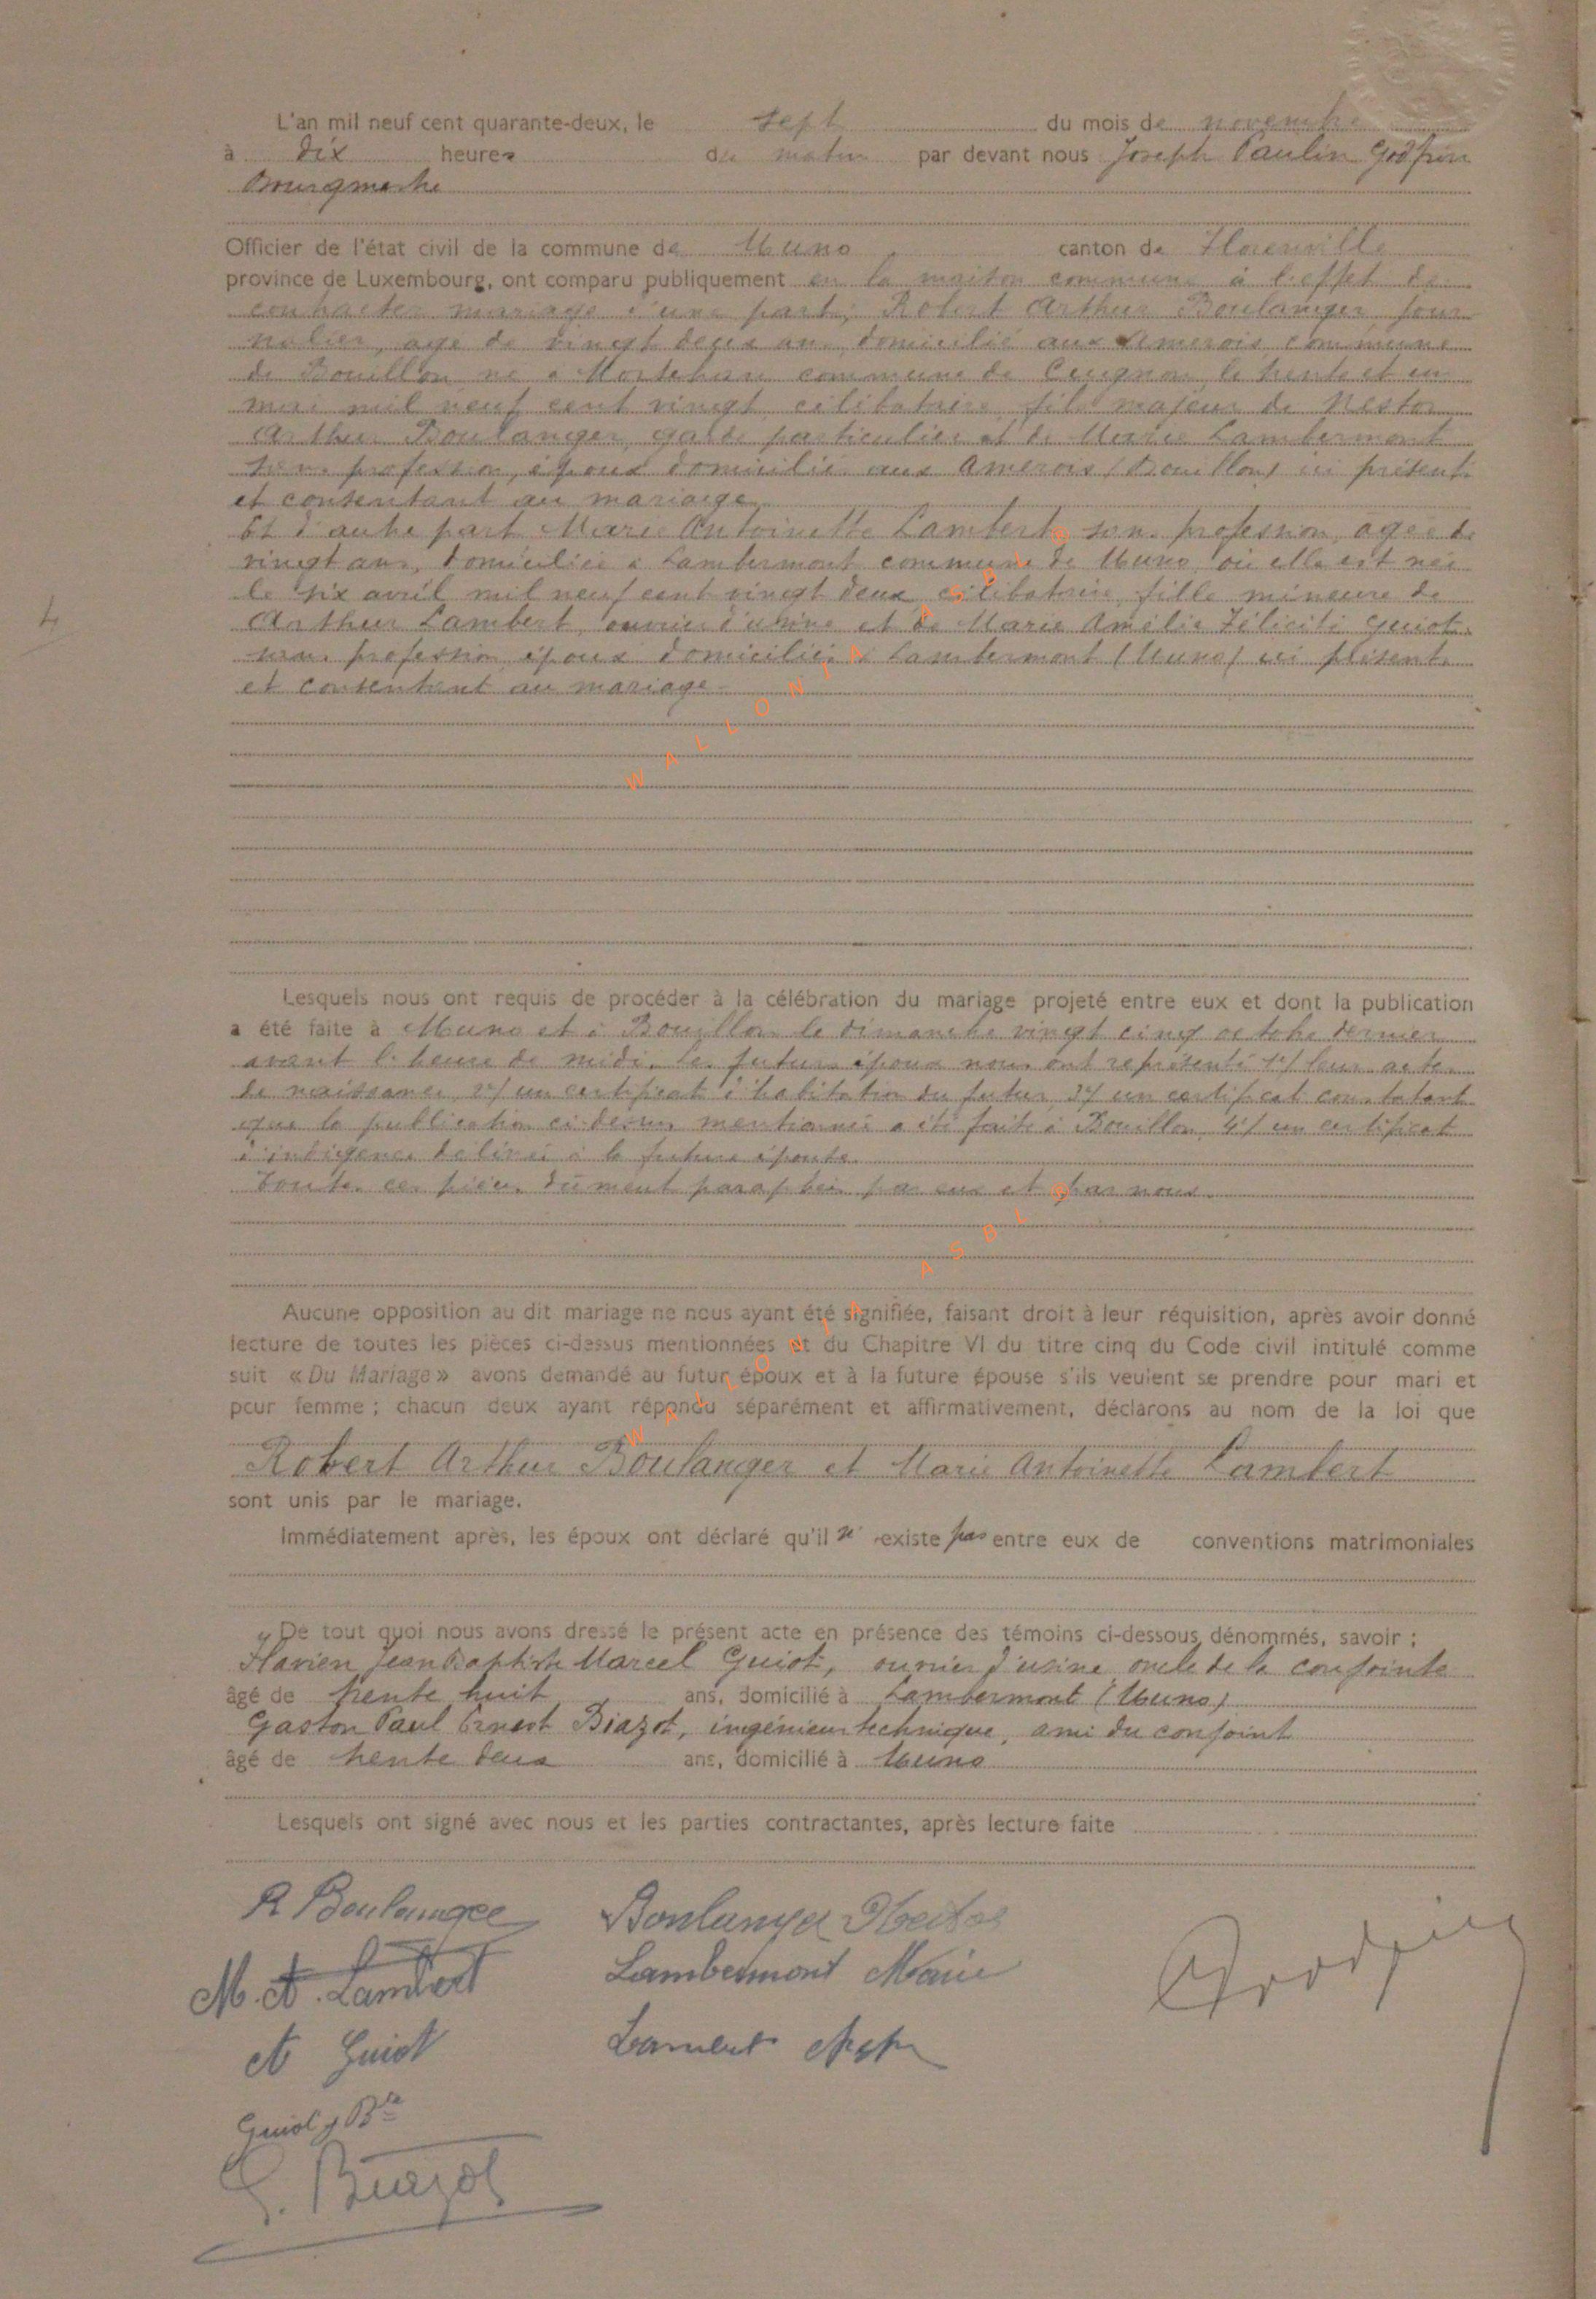 L'an mil neuf cent quarante-deux, le sept du mois de novembre
à dix heures du matin par devant nous Joseph Paulin Godfrin
Bourgmestre
Officier de l'état civil de la commune de Muno canton de Florenville
province de Luxembourg, ont comparu publiquement en la maison commune à l'effet de
contracter mariage d'une part, Robert Arthur Boulanger, jour
nalier, agé de vingt deux ans, domicilié aux Amerois commune
de Bouillon né à Mortehan commune de Cugnon, le trente et un
mai mil neuf cent vingt, célibataire, fils majeur de Nestor
Arthur Boulanger, garde particulier et de Marie Lambermont
sans profession, époux domiciliés aux Amerois (Bouillon) ici présents
et consentant au mariage
Et d'autre part Marie Antoinette Lambert, sans profession, agée de
vingt ans, domiciliée à Lambermont commune de Muno, où elle est née
le six avril mil neuf cent vingt deux, célibataire, fille mineure de
Arthur Lambert, ouvrier d'usine et de Marie Amélie Félicité Guiot
sans profession, époux domiciliés à Lambermont (Muno) ici présents
et consentant au mariage
Lesquels nous ont requis de procéder à la célébration du mariage projeté entre eux et dont la publication
a été faite à Muno et à Bouillon le dimanche vingt cinq octobre dernier
avant l'heure de midi. Les futurs époux nous ont représenté 1°/ leurs actes
de naissance, 2°/ un certificat d'habitation du futur, 3°/ un certificat constatant
que la publication ci-dessus mentionnée a été faite à Bouillon, 4°/ un certificat
d'indigence délivré à la future épouse.
Toutes ces pièces dûment paraphées par eux et par nous.
Aucune opposition au dit mariage ne nous ayant été signifiée, faisant droit à leur réquisition, après avoir donné
lecture de toutes les pièces ci-dessus mentionnées et du Chapitre VI du titre cinq du Code civil intitulé comme
suit « Du Mariage » avons demandé au futur époux et à la future épouse s'ils veulent se prendre pour mari et
pour femme ; chacun deux ayant répondu séparément et affirmativement, déclarons au nom de la loi que
Robert Arthur Boulanger et Marie Antoinette Lambert
sont unis par le mariage.
Immédiatement après, les époux ont déclaré qu'il n' existe pas entre eux de conventions matrimoniales
De tout quoi nous avons dressé le présent acte en présence des témoins ci-dessous dénommés, savoir :
Flavien Jean Baptiste Marcel Guiot, ouvrier d'usine oncle de la conjointe
âgé de trente huit ans, domicilié à Lambermont (Muno)
Gaston Paul Ernest Biazot, ingénieur technique, ami du conjoint
âgé de trente deux ans, domicilié à Muno
Lesquels ont signé avec nous et les parties contractantes, après lecture faite
R Boulanger Boulanger Nestor
M. A. Lambert Lambermont Marie
A Guiot Lambert Arthur
Guiot J Bte
G. Biazot
Godfrin
WALLONIA ASBL ©
WALLONIA ASBL ©